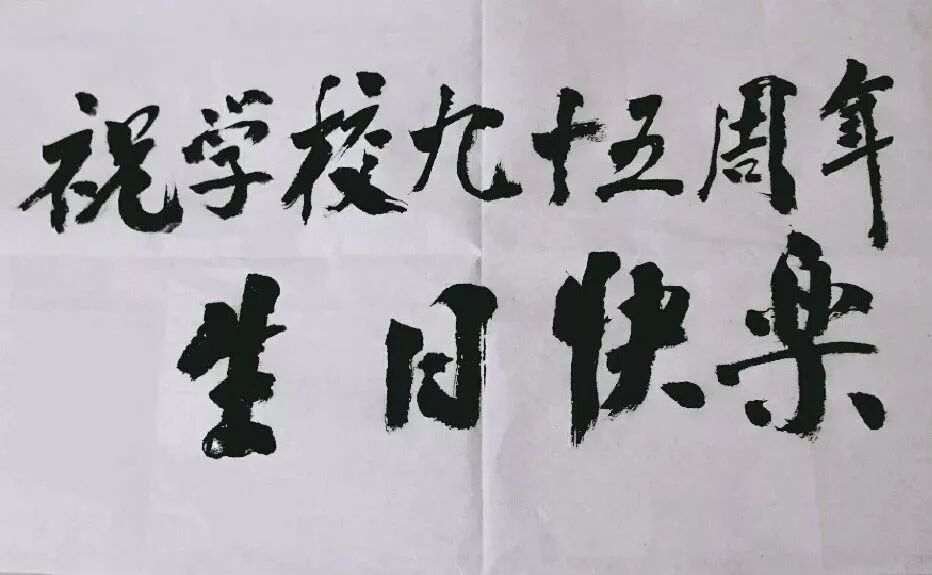 祝学校九十五周年
生日快楽